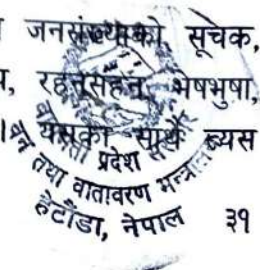 जनसंख्याको सूचक,
रहनसहन, भेषभुषा,
। यसका साथै
प्रदेश
तथा वातावरण मन्त्रालय
हेटौंडा, नेपाल
३१